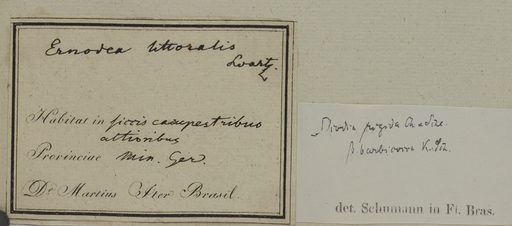 Ernodea littoralis
Swartz
Habitat in siccis campestribus
altioribus
Provinciae Min. Ger.
Dr Martius Iter Brasil.
Diodia Ch. & Schl.
β. K. Sch.
det. Schumann in Fl. Bras.